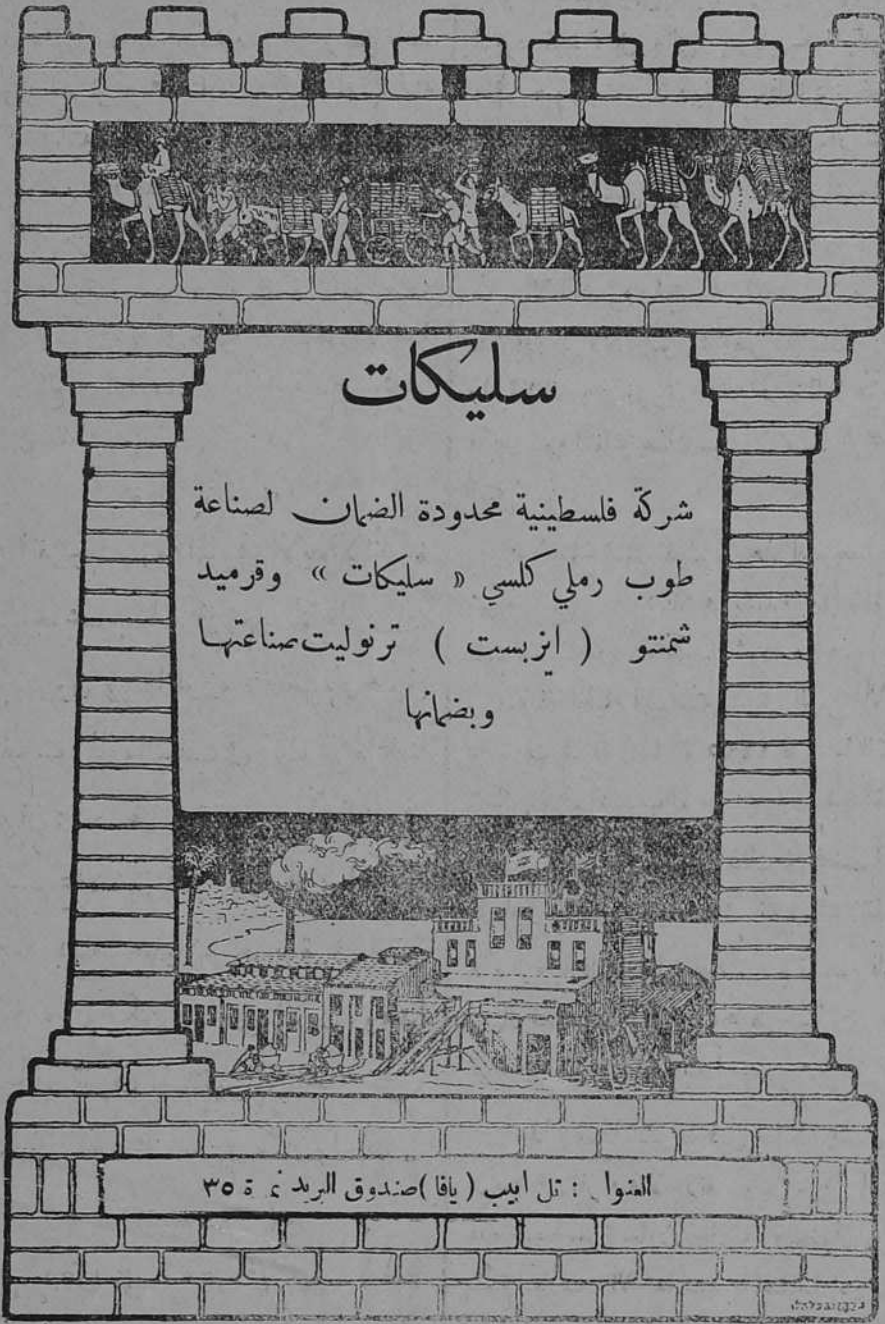 سليكات
شركة فلسطينية محدودة الضمان لصناعة
طوب رملي كلسي « سليكات » وقرميد
شمنتو ( ايزبست ) ترنوليت صناعتها
وبضمانها
العنوا : تل ابيب ( يافا ) صندوق البريد ة ٣٥